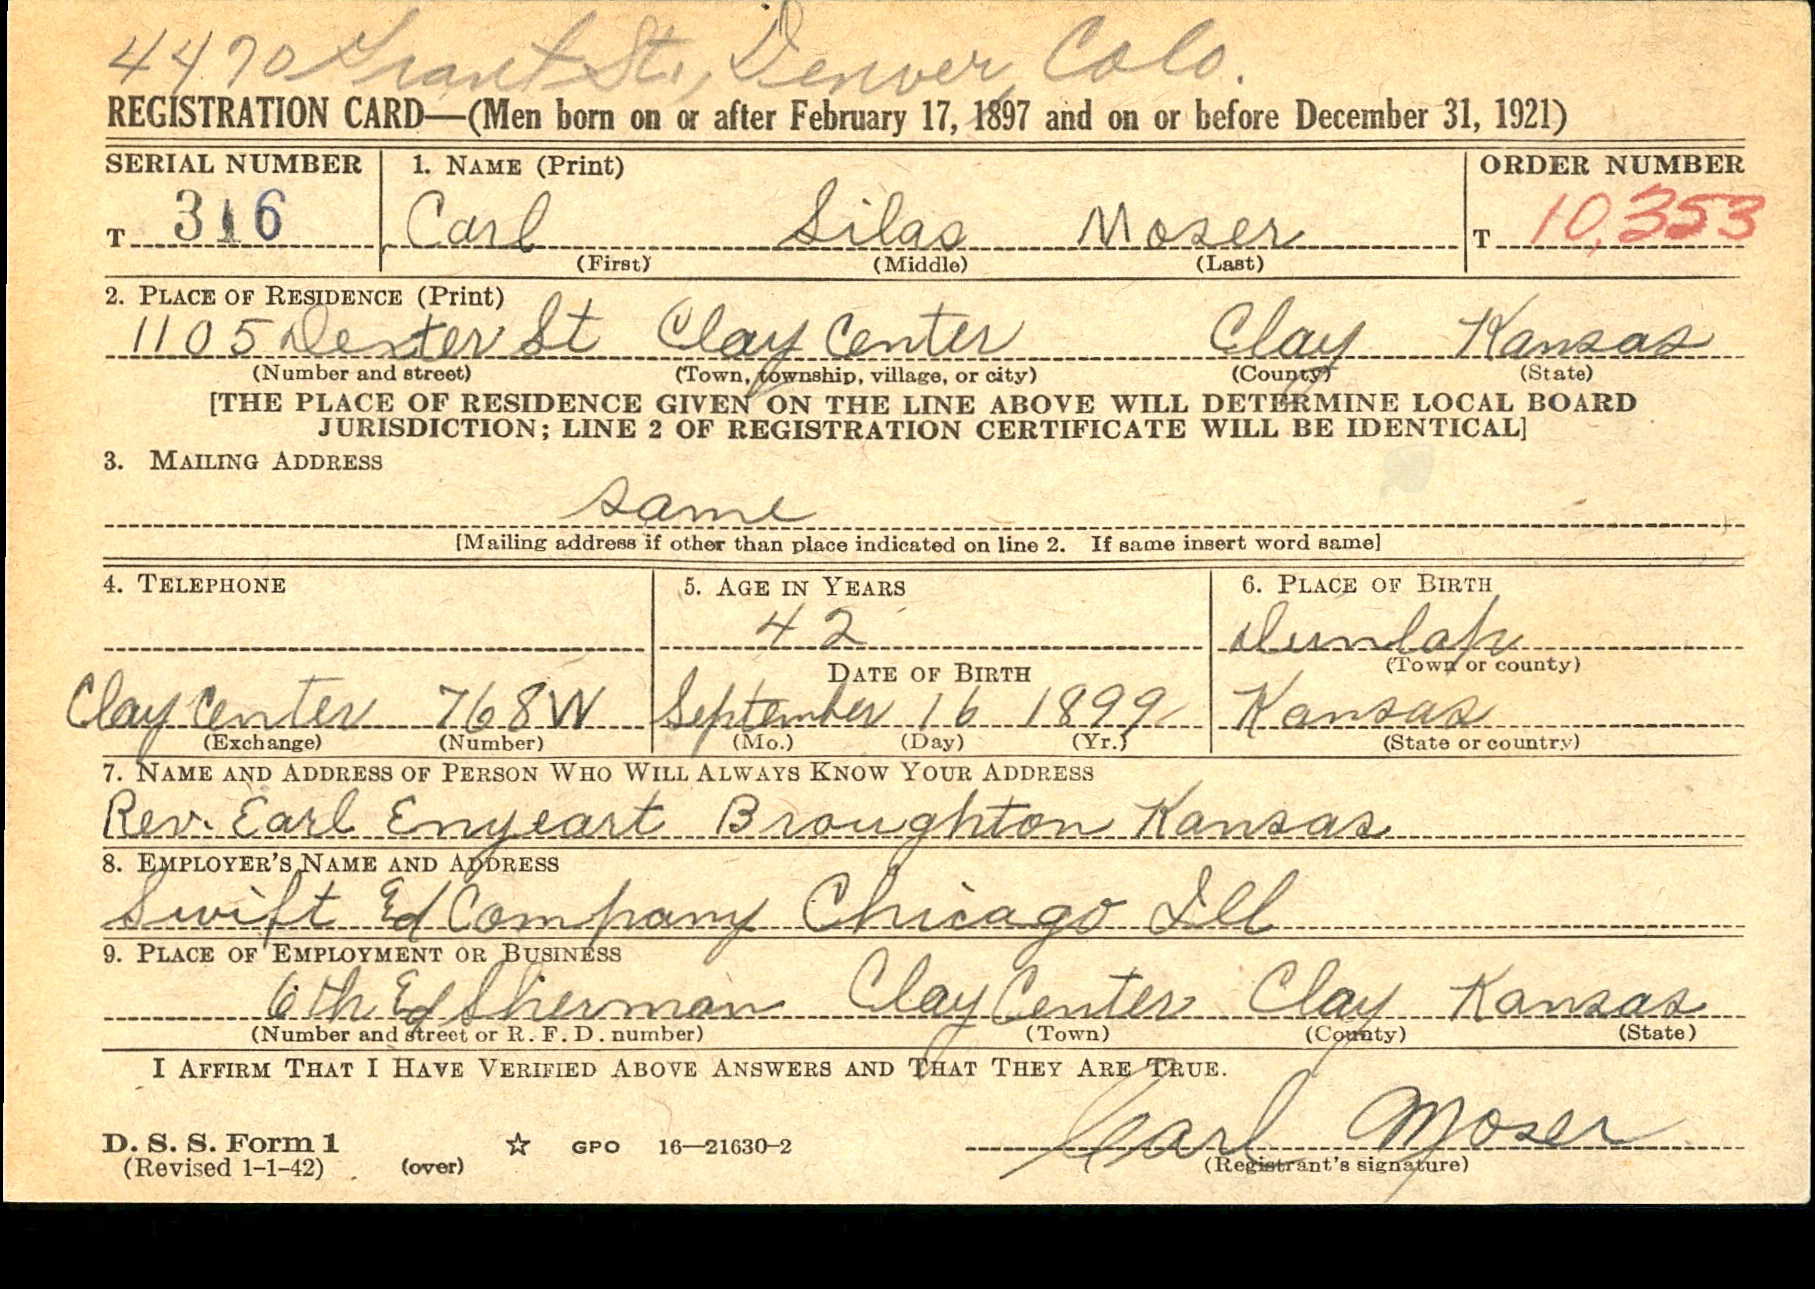 4470 Grant St., Denver, Colo.
REGISTRATION CARD—(Men born on or after February 17, 1897 and on or before December 31, 1921)
SERIAL NUMBER 1. NAME (Print) ORDER NUMBER
T 316 Carl Silas Moser T 10,353
(First) (Middle) (Last)
2. PLACE OF RESIDENCE (Print)
1105 Dexter St Clay Center Clay Kansas
(Number and street) (Town, township, village, or city) (County) (State)
[THE PLACE OF RESIDENCE GIVEN ON THE LINE ABOVE WILL DETERMINE LOCAL BOARD
JURISDICTION; LINE 2 OF REGISTRATION CERTIFICATE WILL BE IDENTICAL]
3. MAILING ADDRESS
same
[Mailing address if other than place indicated on line 2. If same insert word same]
4. TELEPHONE 5. AGE IN YEARS 6. PLACE OF BIRTH
42 Dunlap
DATE OF BIRTH (Town or county)
Clay Center 768W September 16 1899 Kansas
(Exchange) (Number) (Mo.) (Day) (Yr.) (State or country)
7. NAME AND ADDRESS OF PERSON WHO WILL ALWAYS KNOW YOUR ADDRESS
Rev. Earl Enyeart Broughton Kansas
8. EMPLOYER'S NAME AND ADDRESS
Swift & Company Chicago Ill
9. PLACE OF EMPLOYMENT OR BUSINESS
6th & Sherman Clay Center Clay Kansas
(Number and street or R. F. D. number) (Town) (County) (State)
I AFFIRM THAT I HAVE VERIFIED ABOVE ANSWERS AND THAT THEY ARE TRUE.
Carl Moser
D. S. S. Form 1 ☆ GPO 16—21630-2
(Revised 1-1-42) (over) (Registrant's signature)